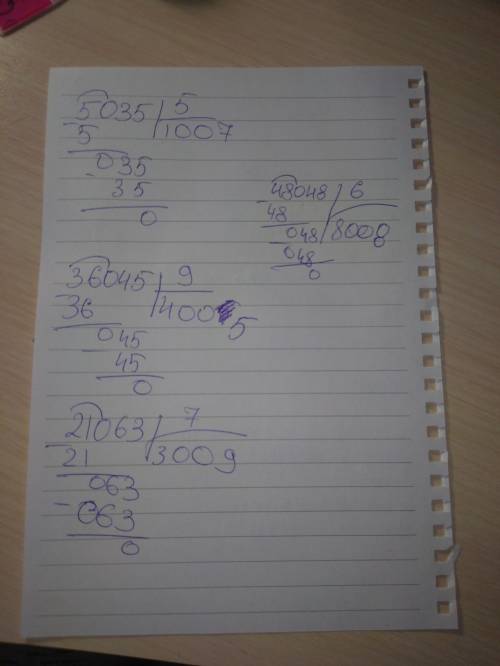 5035 | 5
5 | 1007
035
- 35
0
48048 | 6
- 48 | 8008
048
- 048
0
36045 | 9
36 | 4005
045
45
0
21063 | 7
21 | 3009
063
- 063
0